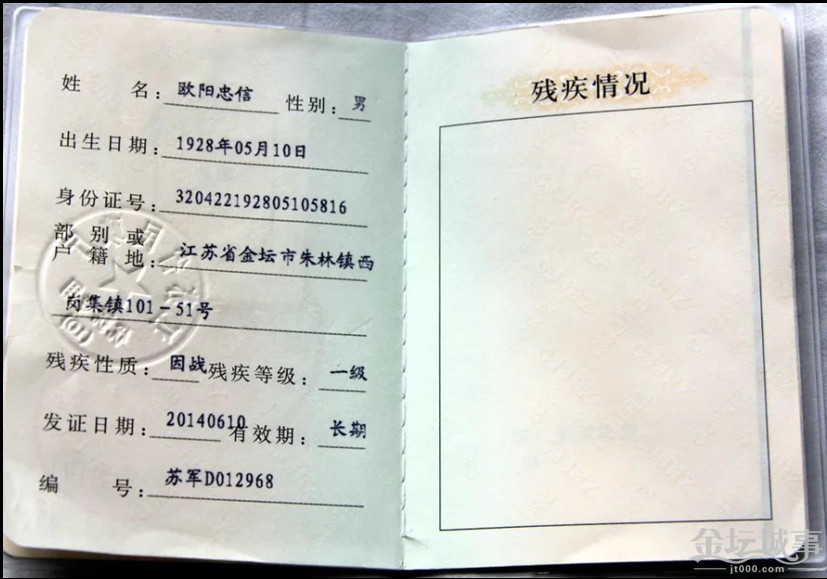 姓 名：欧阳忠信 性别：男
出生日期：1928年05月10日
身份证号：320422192805105816
部别或
户籍地：江苏省金坛市朱林镇西
岗集镇101-51号
残疾性质：因战 残疾等级：一级
发证日期：20140610 有效期：长期
编 号：苏军D012968
残疾情况
金坛城事
jt000.com